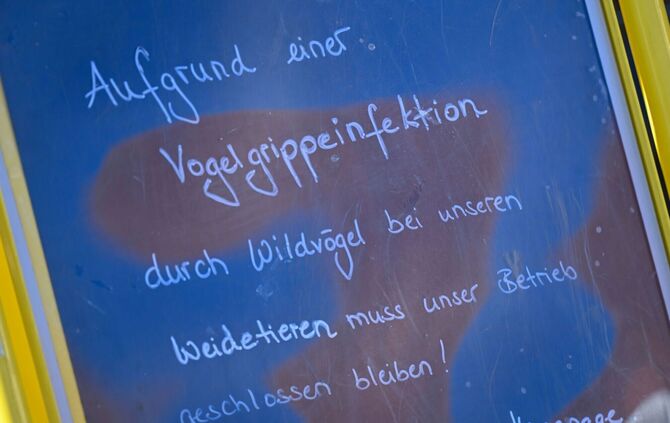 Aufgrund einer
Vogelgrippeinfektion
durch Wildvögel bei unseren
Weidetieren muss unser Betrieb
geschlossen bleiben!
Homepage